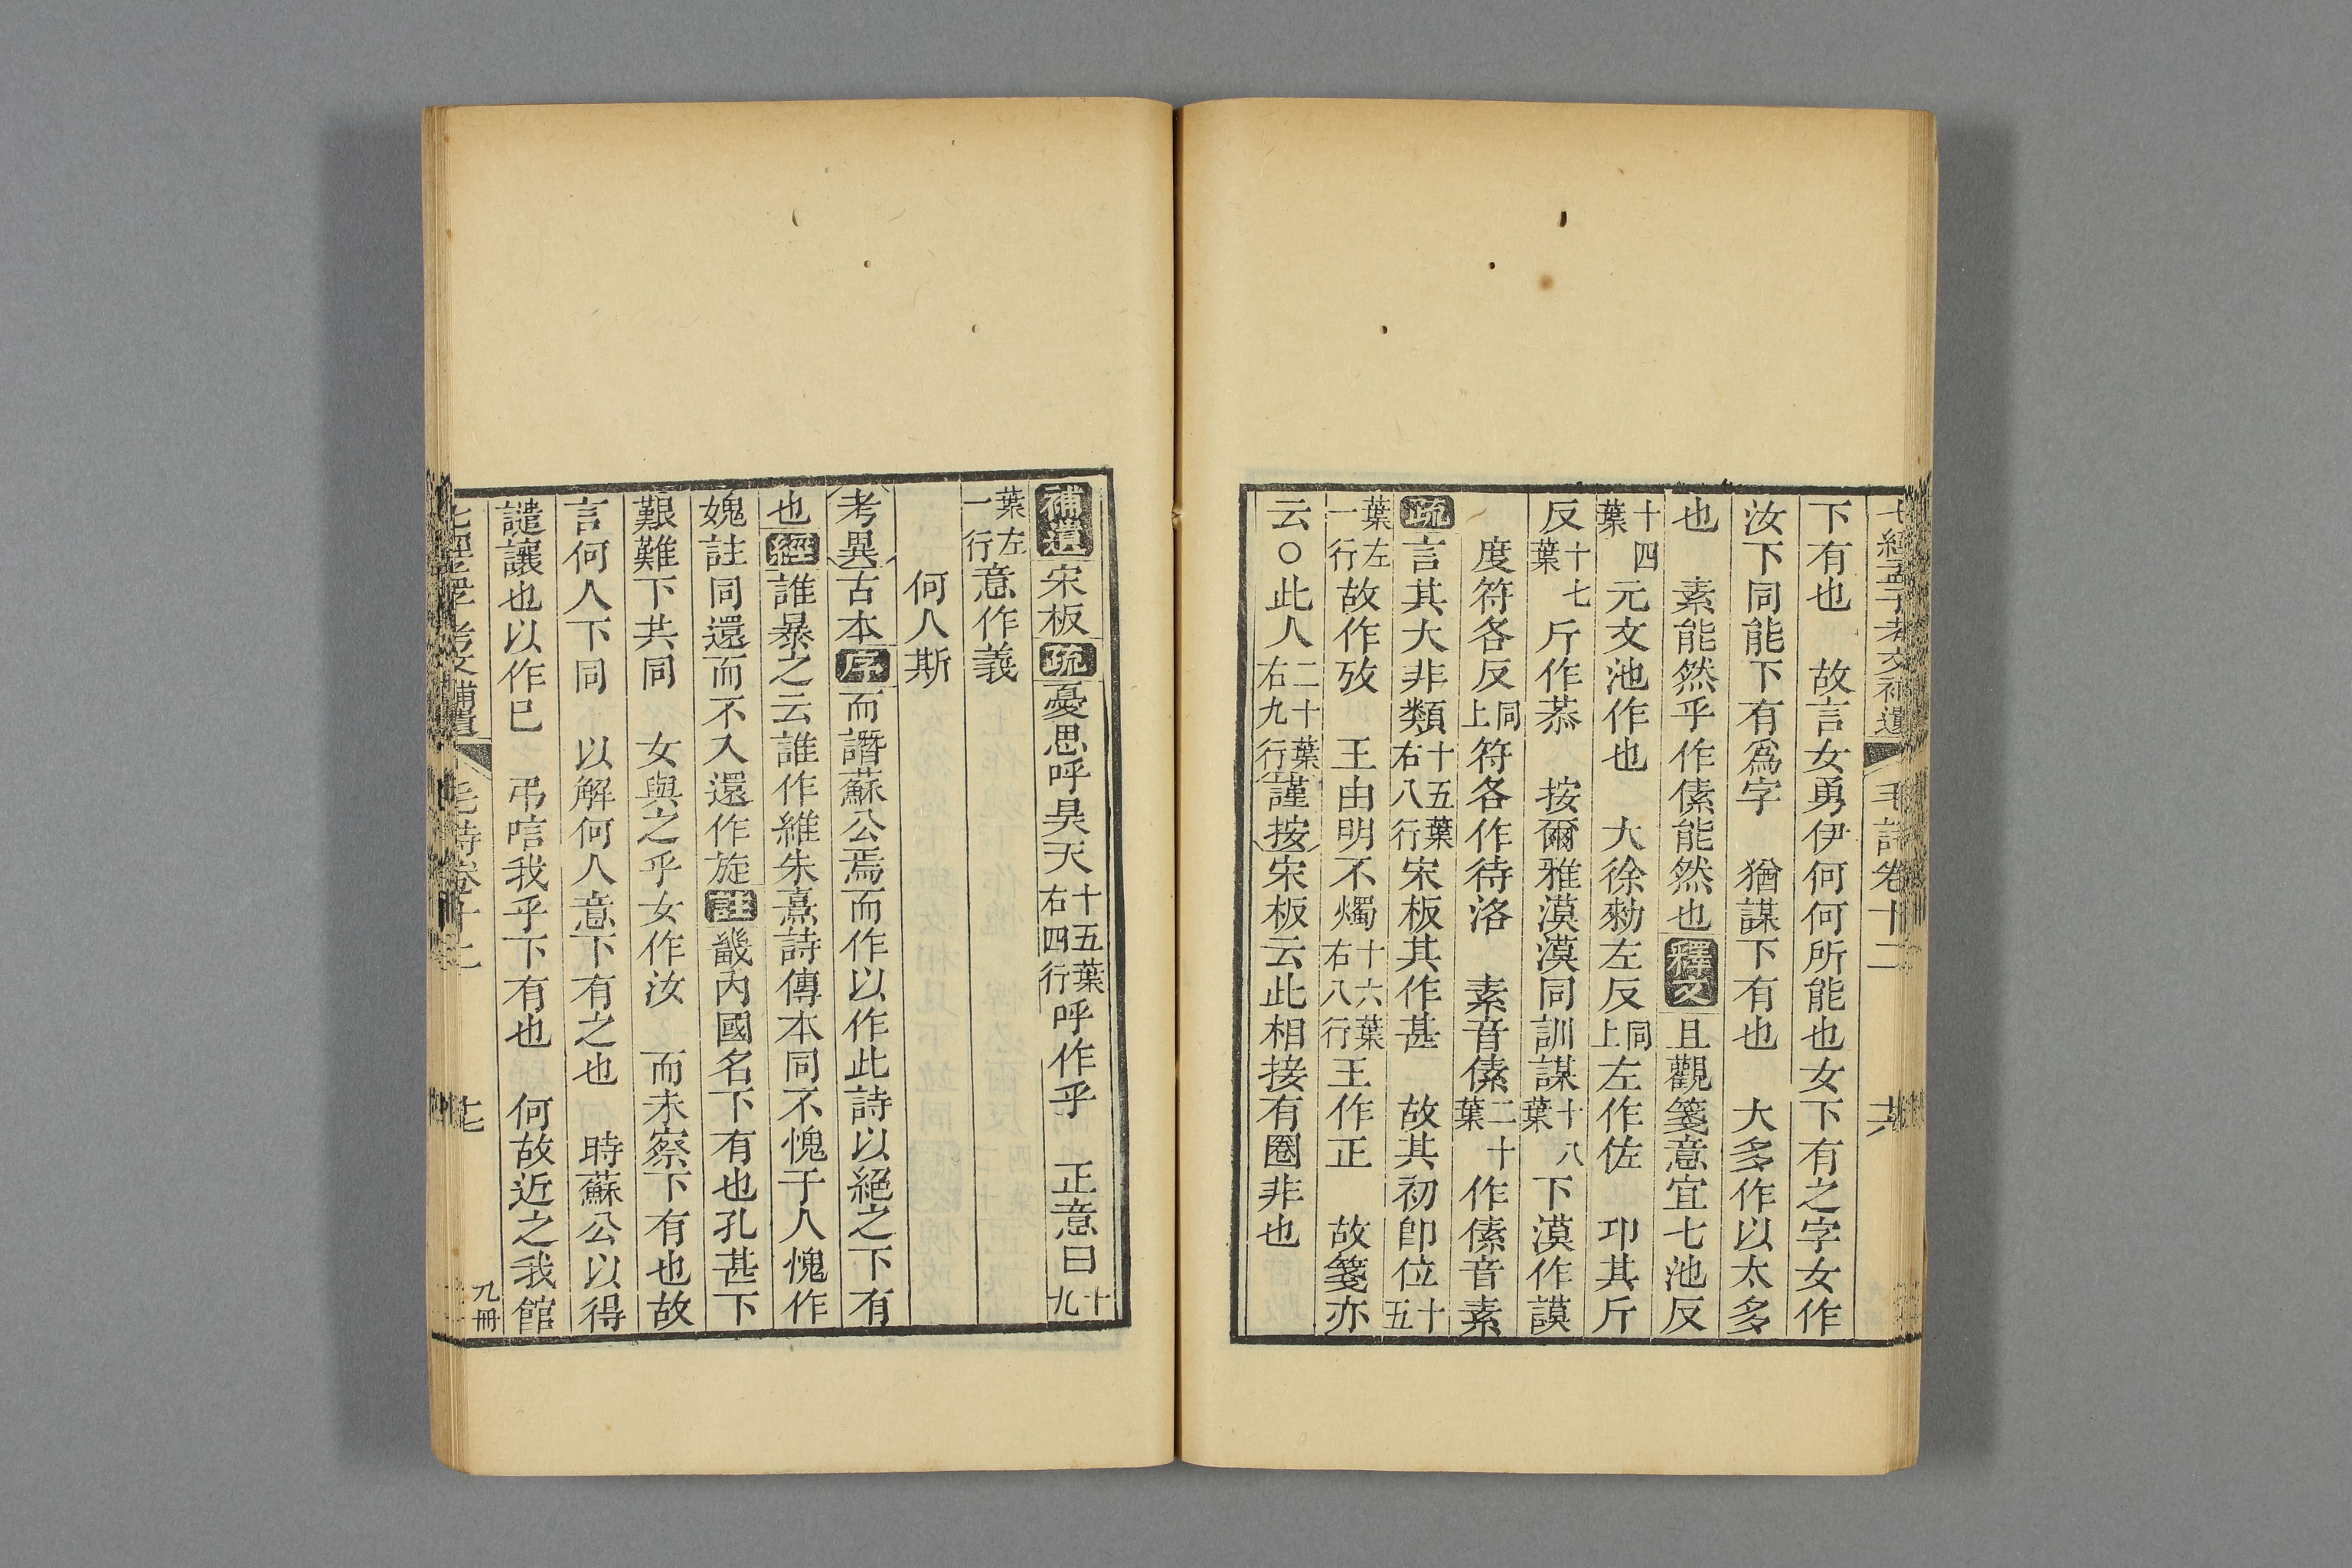 七經孟子考文補遺 毛詩卷十二 共
下有也 故言女勇伊何何所能也女下有之字女作
汝下同能下有爲字 猶謀下有也 大多作以太多
也 素能然乎作傃能然也釋文且觀箋意宜七池反
十四葉元文池作也 大徐勑左反同上左作佐 卭其斤
反十七葉斤作恭 按爾雅漠漠同訓謀十八葉下漠作謨
度符各反同上符各作待洛 素音傃二十葉作傃音素
疏言其大非類十五葉右八行宋板其作甚 故其初卽位十五
葉左一行故作攷 王由明不燭十六葉右八行王作正 故箋亦
云○此人二十葉右九行謹按宋板云此相接有圈非也
補遺宋板疏憂思呼昊天十五葉右四行呼作乎 正意曰十九
葉左一行意作義
何人斯
考異古本序而譖蘇公焉而作以作此詩以絕之下有
也經誰暴之云誰作維朱熹詩傳本同不愧于人愧作
媿註同還而不入還作旋註畿內國名下有也孔甚下
艱難下共同 女與之乎女作汝 而未察下有也故
言何人下同 以解何人意下有之也 時蘇公以得
譴讓也以作已 弔唁我乎下有也 何故近之我館
毛詩卷十二 九冊